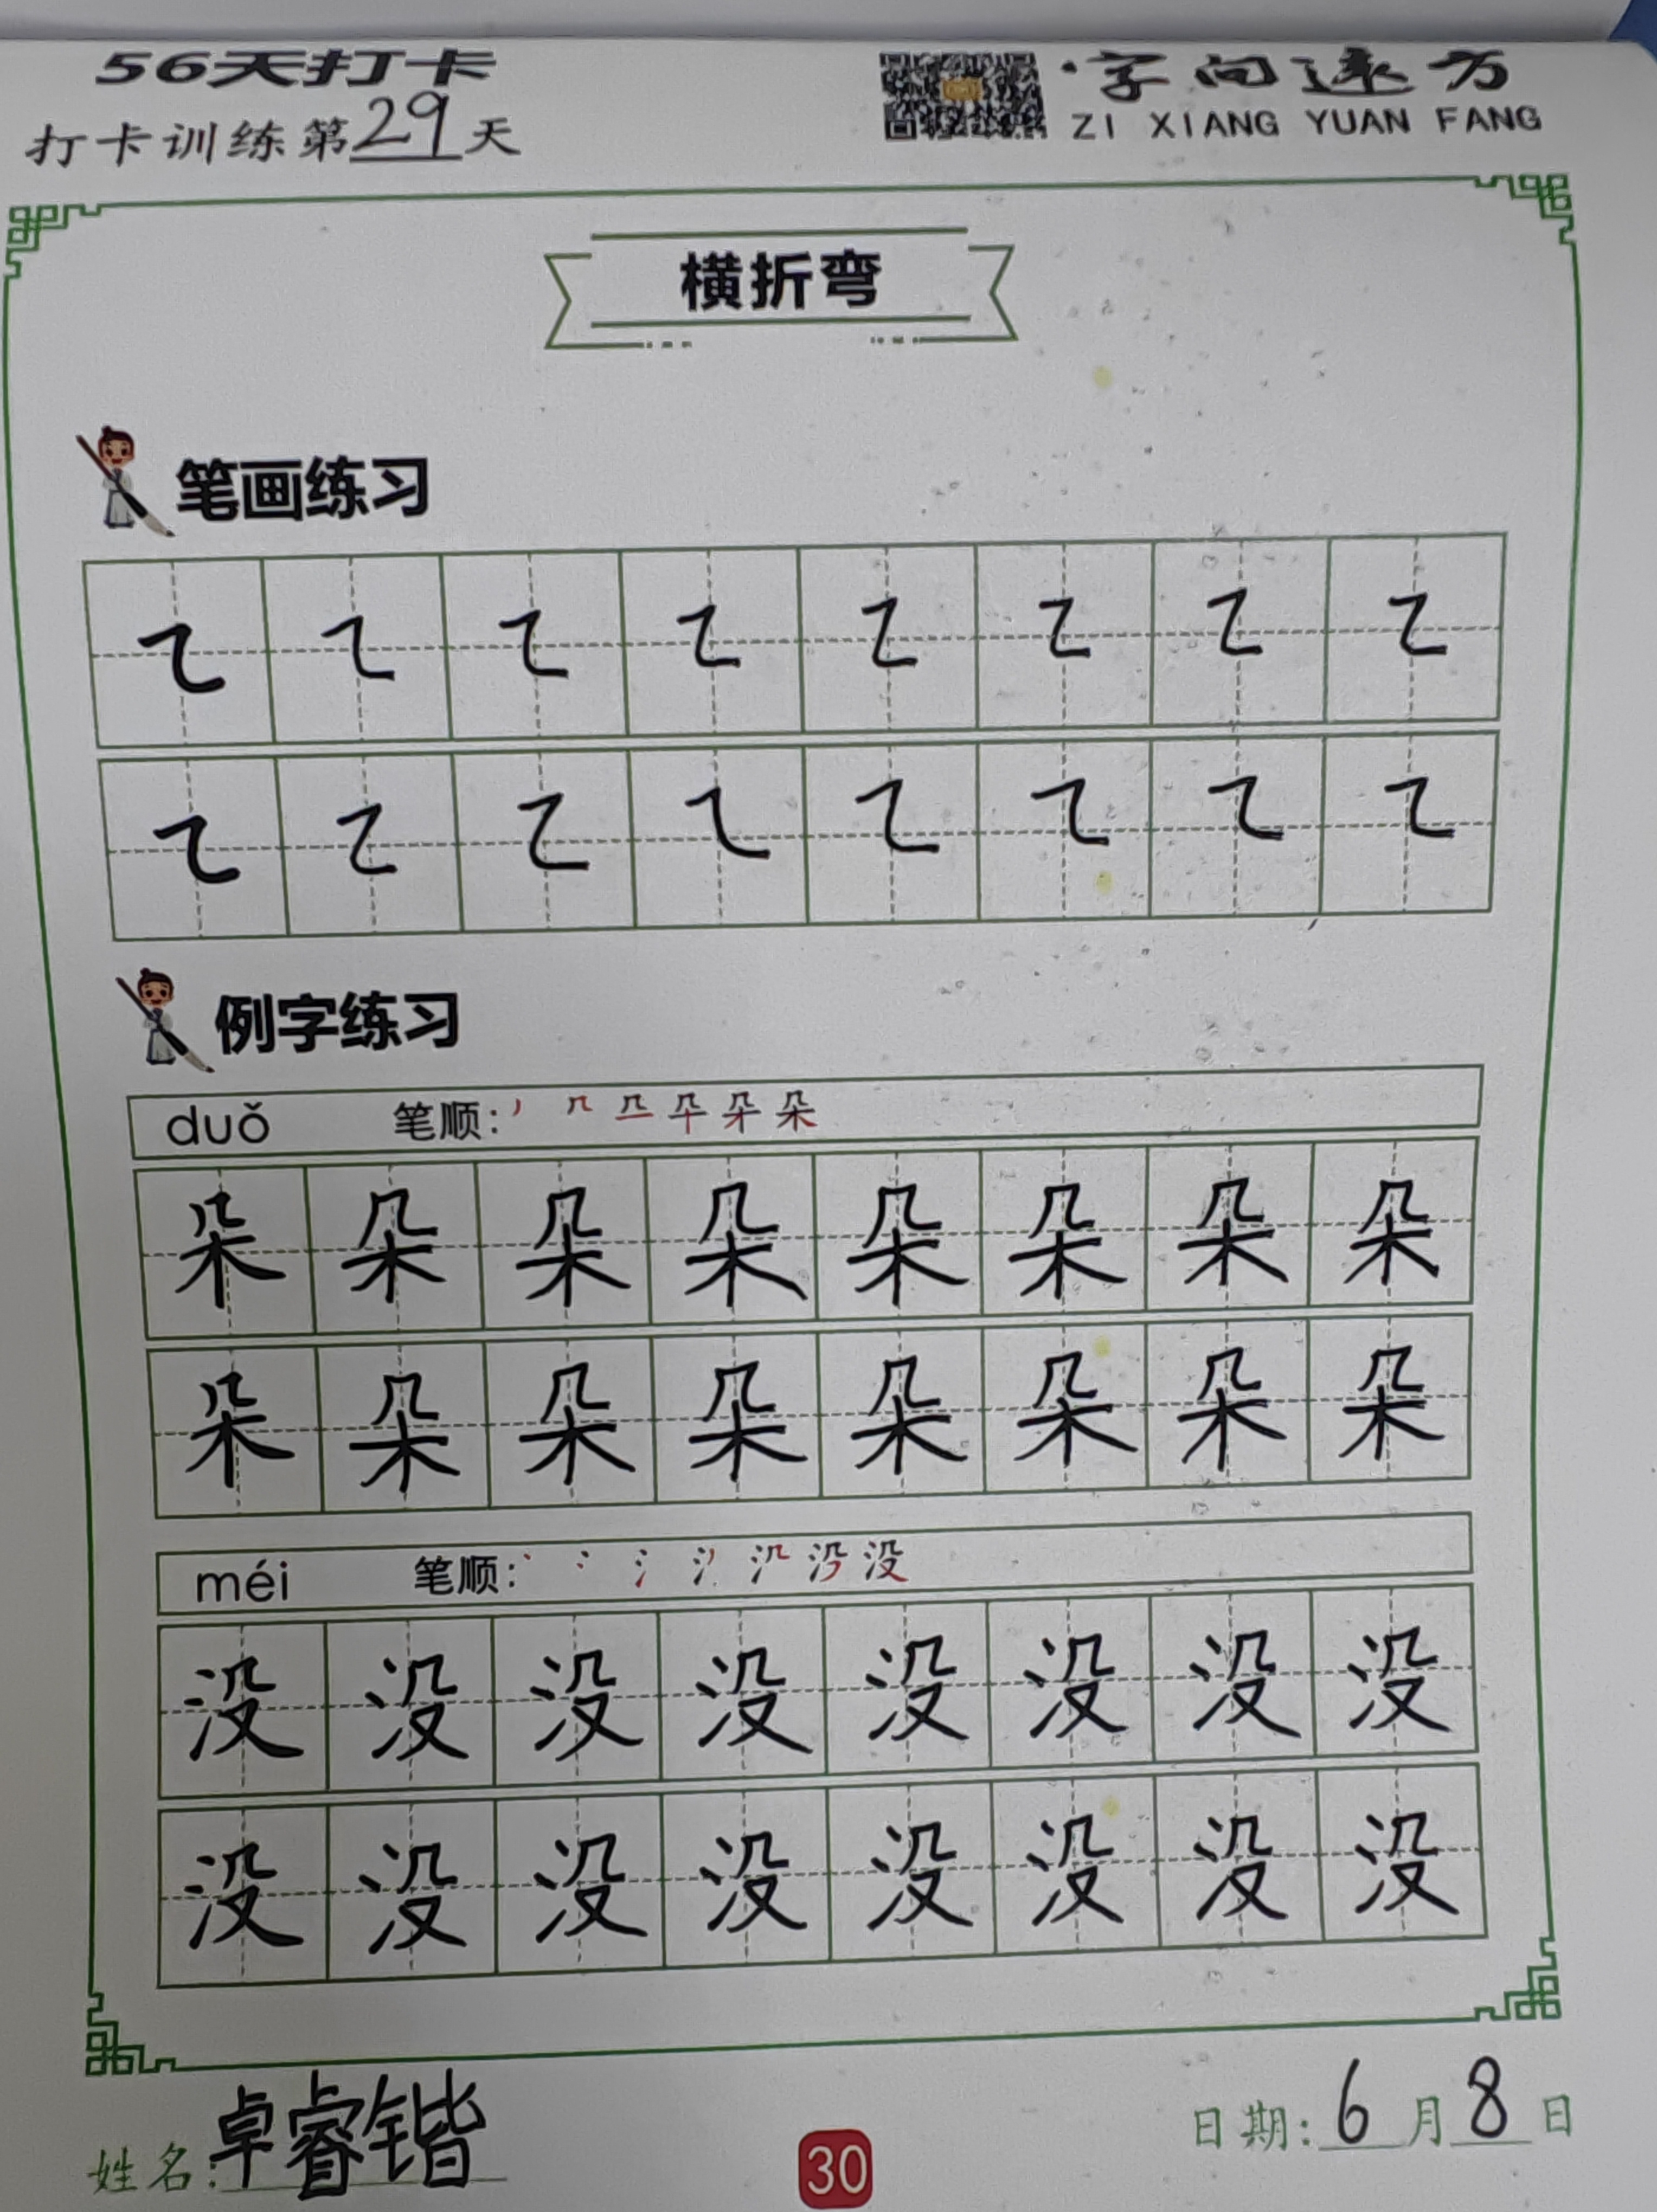 56天打卡
打卡训练第29天
字向远方
ZI XIANG YUAN FANG
横折弯
笔画练习
例字练习
duǒ 笔顺:
朵 朵 朵 朵 朵 朵 朵 朵
朵 朵 朵 朵 朵 朵 朵 朵
méi 笔顺: 没
没 没 没 没 没 没 没 没
没 没 没 没 没 没 没 没
姓名:卓睿锴
30
日期:6月8日